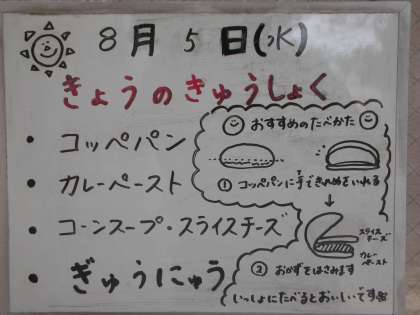 8月5日(水)
きょうのきゅうしょく
・コッペパン
・カレーペースト
・コーンスープ・スライスチーズ
・ぎゅうにゅう
おすすめのたべかた
① コッペパンに手できれめをいれる
スライスチーズ
カレーペースト
② おかずをはさみます
いっしょにたべるとおいしいです